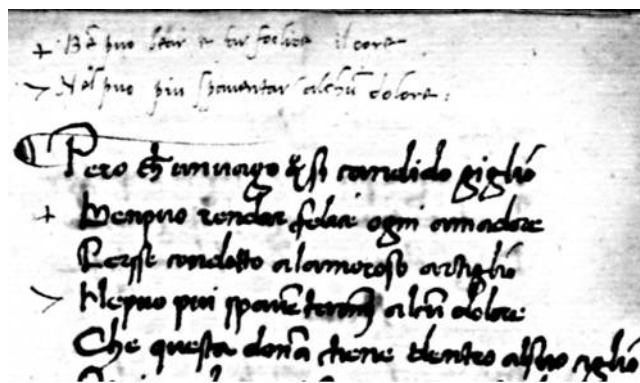 + Bē puo bear e far felice il core
> Nel puo piu spauentar alchū dolore:
Pero ch̄ un uago & si candido giglio
+ Ben puo render felice ogni amadore
Per se condotto a lamoroso artiglio
> Ne puo pui spauē alcū dolore
Che questa don̄a tiene dentro al suo